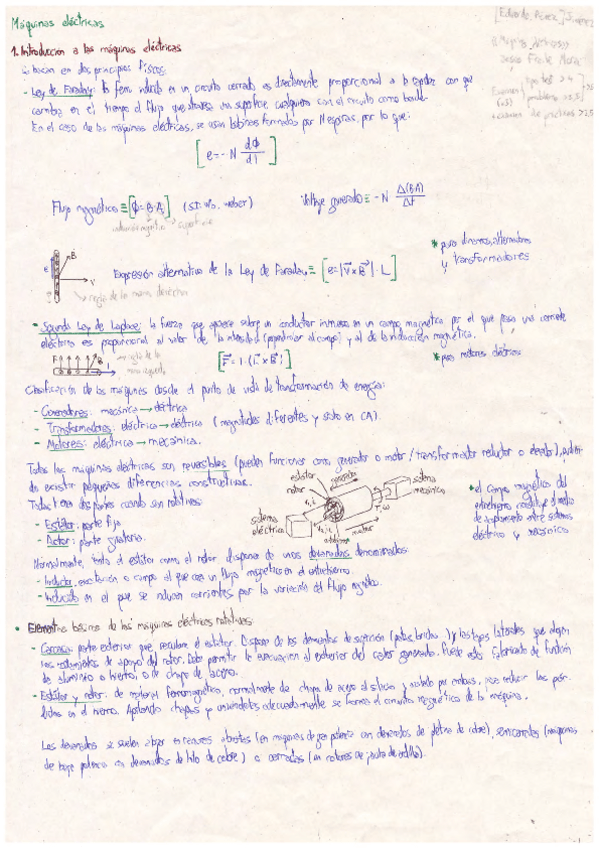 Máquinas eléctricas
1. Introducción a las máquinas eléctricas
se basan en dos principios físicos:
- Ley de Faraday: la fem inducida en un circuito cerrado es directamente proporcional a la rapidez con que
cambia en el tiempo el flujo que atraviesa una superficie cualquiera con el circuito como borde.
En el caso de las máquinas eléctricas, se usan bobinas formadas por N espiras, por lo que:
[e = - N dΦ/dt]
Flujo magnético ≡ [ϕ = B·A] (S.I: Wb, weber)
inducción magnética superficie
Voltaje generado ≡ - N Δ(BA)/Δt
* para dinamos, alternadores
y transformadores
Expresión alternativa de la Ley de Faraday ≡ [e = |V x B|· L]
regla de la mano derecha
- Segunda Ley de Laplace: la fuerza que aparece sobre un conductor inmerso en un campo magnético por el que pasa una corriente
eléctrica es proporcional al valor de la intensidad (perpendicular al campo) y al de la inducción magnética.
regla de la
mano izquierda
[F = I · (L x B)]
* para motores eléctricos
Clasificación de las máquinas desde el punto de vista de transformación de energía:
- Generadores: mecánica → eléctrica
- Transformadores: eléctrica → eléctrica (magnitudes diferentes y solo en CA).
- Motores: eléctrica → mecánica.
Todas las máquinas eléctricas son reversibles (pueden funcionar como generador o motor / transformador reductor o elevador),
existir pequeñas diferencias constructivas.
Todas tienen dos partes cuando son rotativas:
- Estátor: parte fija
- Rotor: parte giratoria.
estátor
rotor
generador
sistema
mecánico
sistema
eléctrico
T, ω
motor
* el campo magnético del
entrehierro constituye el medio
de acoplamiento entre sistemas
eléctrico y mecánico
Normalmente, tanto el estátor como el rotor disponen de unos devanados denominados:
- Inductor: excitación o campo al que crea un flujo magnético en el entrehierro.
- Inducido: en el que se inducen corrientes por la variación del flujo magnético.
• Elementos básicos de las máquinas eléctricas rotativas:
- Carcasa: parte exterior que recubre el estátor. Dispone de los elementos de sujeción (patas, bridas...) y las tapas laterales que alojan
los rodamientos de apoyo del rotor. Debe permitir la evacuación al exterior del calor generado. Puede estar fabricada de fundición
de aluminio o hierro, o de chapa de acero.
- Estátor y rotor: de material ferromagnético, normalmente de chapa de acero al silicio y aislada por ambas, para reducir las pér-
didas en el hierro. Apilando chapas y uniéndolas adecuadamente se forma el circuito magnético de la máquina.
Los devanados se suelen alojar en ranuras abiertas (en máquinas de gran potencia con devanados de pletina de cobre), semicerradas (máquinas
de baja potencia con devanados de hilo de cobre) o cerradas (en rotores de jaula de ardilla).